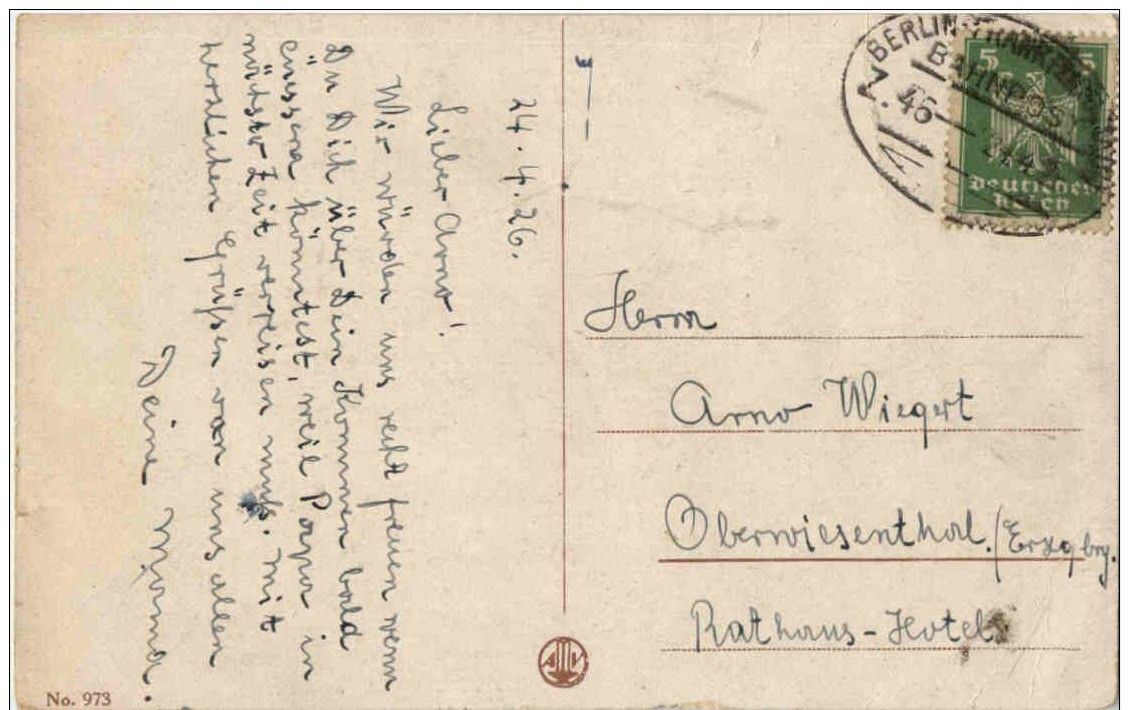 24.4.26.
Lieber Arno!
Wir würden uns recht freuen wenn
Du Dich über Dein Kommen bald
äussern könntest, weil Papa in
nächster Zeit verreisen muß. Mit
herzlichen Grüßen von uns allen
Deine Mama.
No. 973
BERLIN-FRANKF
BAHNPOS
46
5 5
Deutsches
Reich
Herrn
Arno Wiegert
Oberwiesenthal. (Erzgbrg.
Rathaus-Hotel